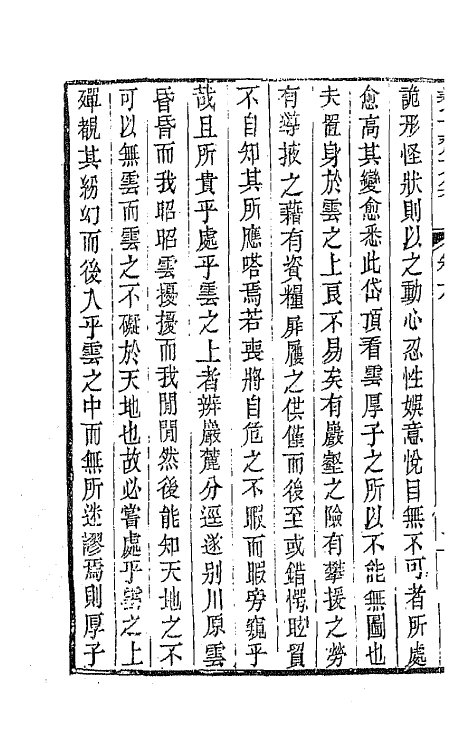 詭形怪狀則以之動心忍性娛意悅目無不可者所處
愈高其變愈悉此岱頂看雲厚子之所以不能無圖也
夫置身於雲之上良不易矣有巖壑之險有攀援之勞
有導掖之藉有資糧屝屨之供僅而後至或錯愕眩貿
不自知其所應嗒焉若喪將自危之不暇而暇旁窺乎
哉且所貴乎處乎雲之上者辨巖麓分逕遂别川原雲
昏昏而我昭昭雲擾擾而我閒閒然後能知天地之不
可以無雲而雲之不礙於天地也故必嘗處乎雲之上
殫觀其紛幻而後入乎雲之中而無所迷謬焉則厚子